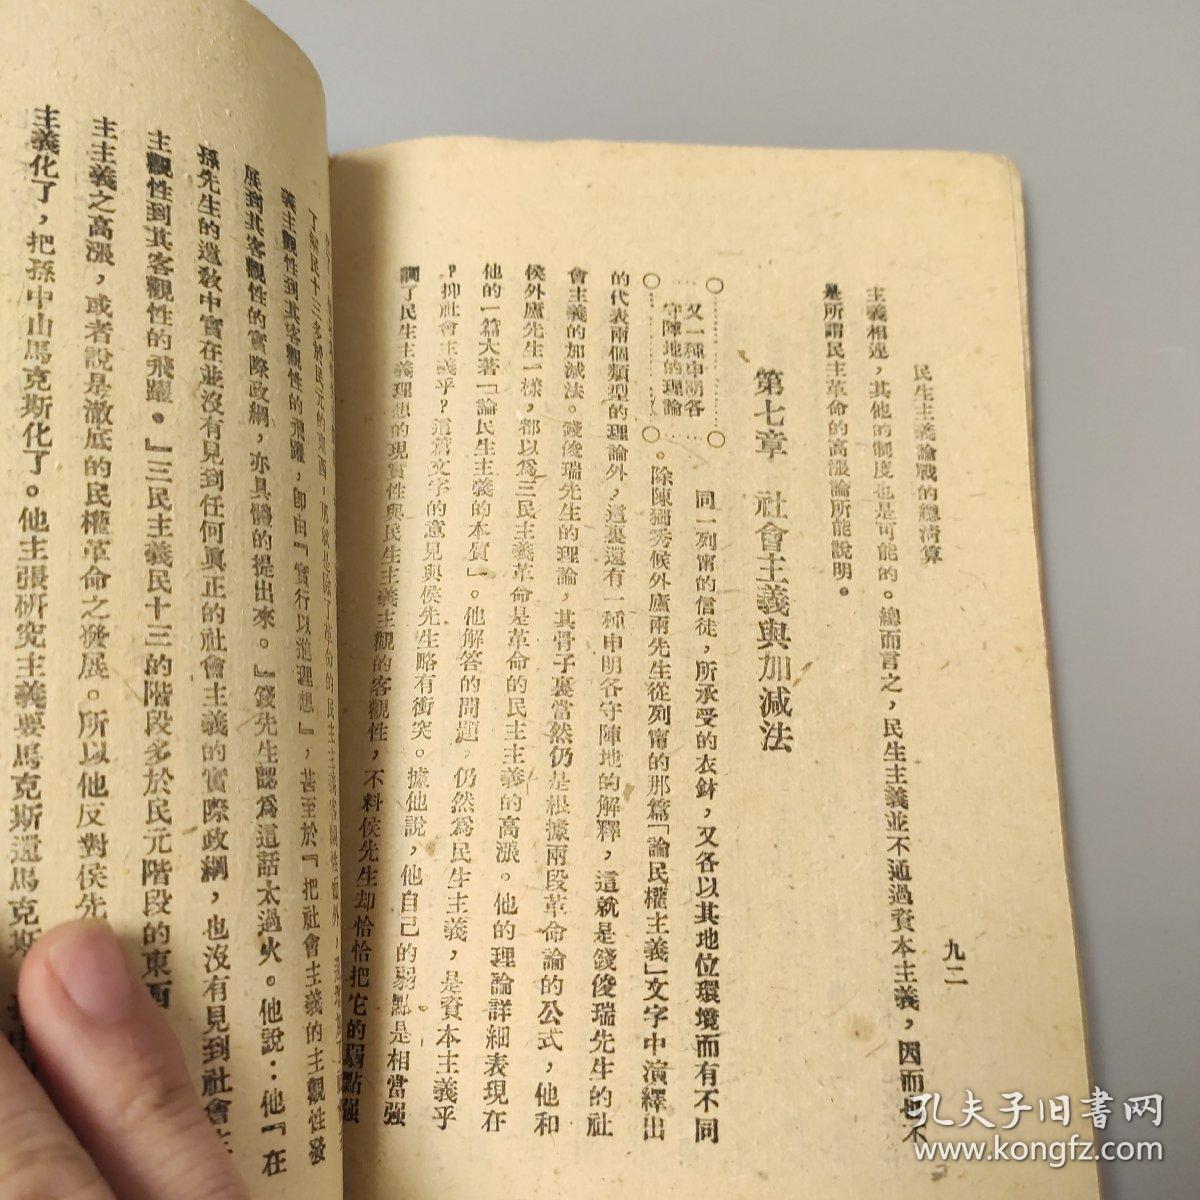 民生主義論戰的總清算
九二
主義相違，其他的制度也是可能的。總而言之，民生主義並不通過資本主義，因而也不
是所謂民主革命的高漲論所能說明。
第七章　社會主義與加減法
又一種申明各
守陣地的理論
同一列甯的信徒，所承受的衣鉢，又各以其地位環境而有不同
。除陳獨秀候外廬兩先生從列甯的那篇「論民權主義」文字中演繹出
的代表兩個類型的理論外，這裏還有一種申明各守陣地的解釋，這就是錢俊瑞先生的社
會主義的加減法。錢俊瑞先生的理論，其骨子裏當然仍是根據兩段革命論的公式，他和
侯外廬先生一樣，都以爲三民主義革命是革命的民主主義的高漲。他的理論詳細表現在
他的一篇大著「論民生主義的本質」。他解答的問題，仍然爲民生主義，是資本主義乎
？抑社會主義乎？這篇文字的意見與侯先生略有衝突。據他說，他自己的弱點是相當强
調了民生主義理想的現實性與民生主義主觀的客觀性，不料侯先生却恰恰把它的弱點强
義主觀性到其客觀性的飛躍，卽由『實行以達理想』，甚至於『把社會主義的主觀性發
展到其客觀性的實際政綱，亦具體的提出來。』錢先生認爲這話太過火。他說：他『在
孫先生的遺敎中實在並沒有見到任何眞正的社會主義的實際政綱，也沒有見到社會主
主觀性到其客觀性的飛躍。』三民主義民十三的階段多於民元階段的東西
主主義之高漲，或者說是澈底的民權革命之發展。所以他反對侯先
主義化了，把孫中山馬克斯化了。他主張研究主義要馬克斯還馬克斯
孔夫子旧書网
www.kongfz.com